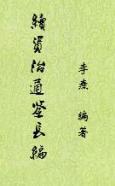 李燾 編著
續資治通鑒長編